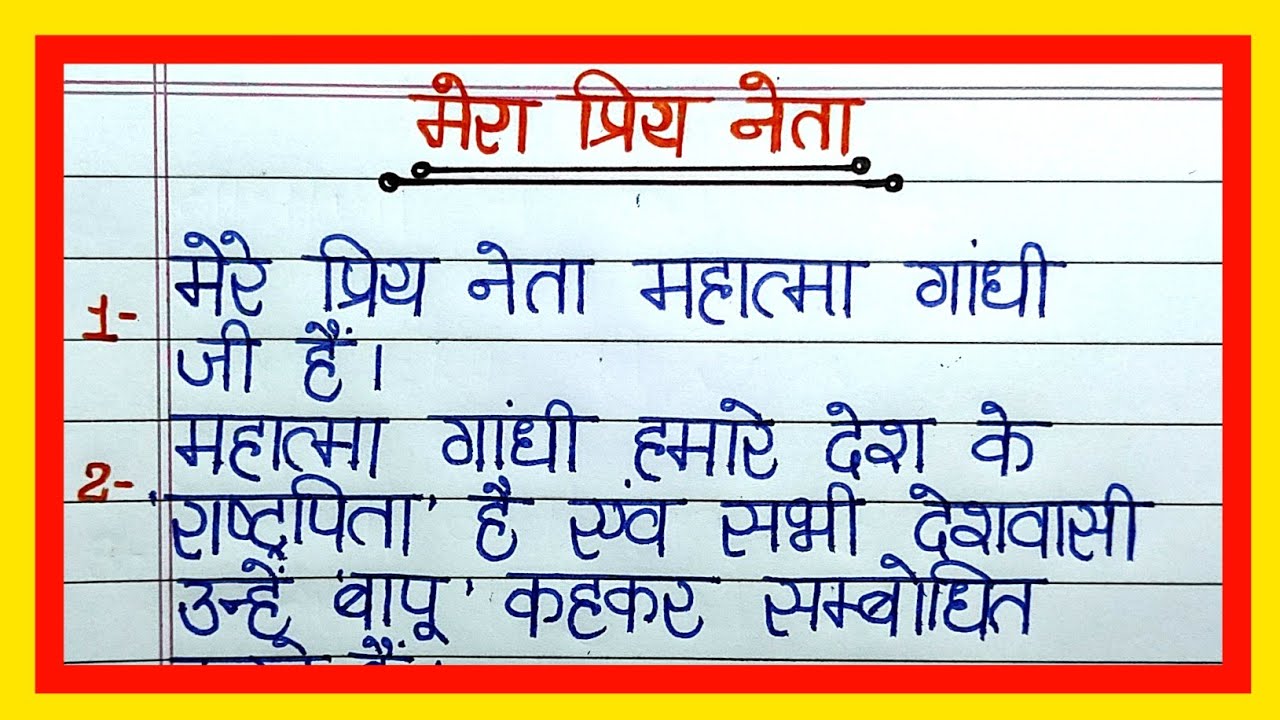 मेरा प्रिय नेता
1- मेरे प्रिय नेता महात्मा गांधी
जी हैं।
2- महात्मा गांधी हमारे देश के
'राष्ट्रपिता' है एंव सभी देशवासी
उन्हें 'बापू' कहकर सम्बोधित